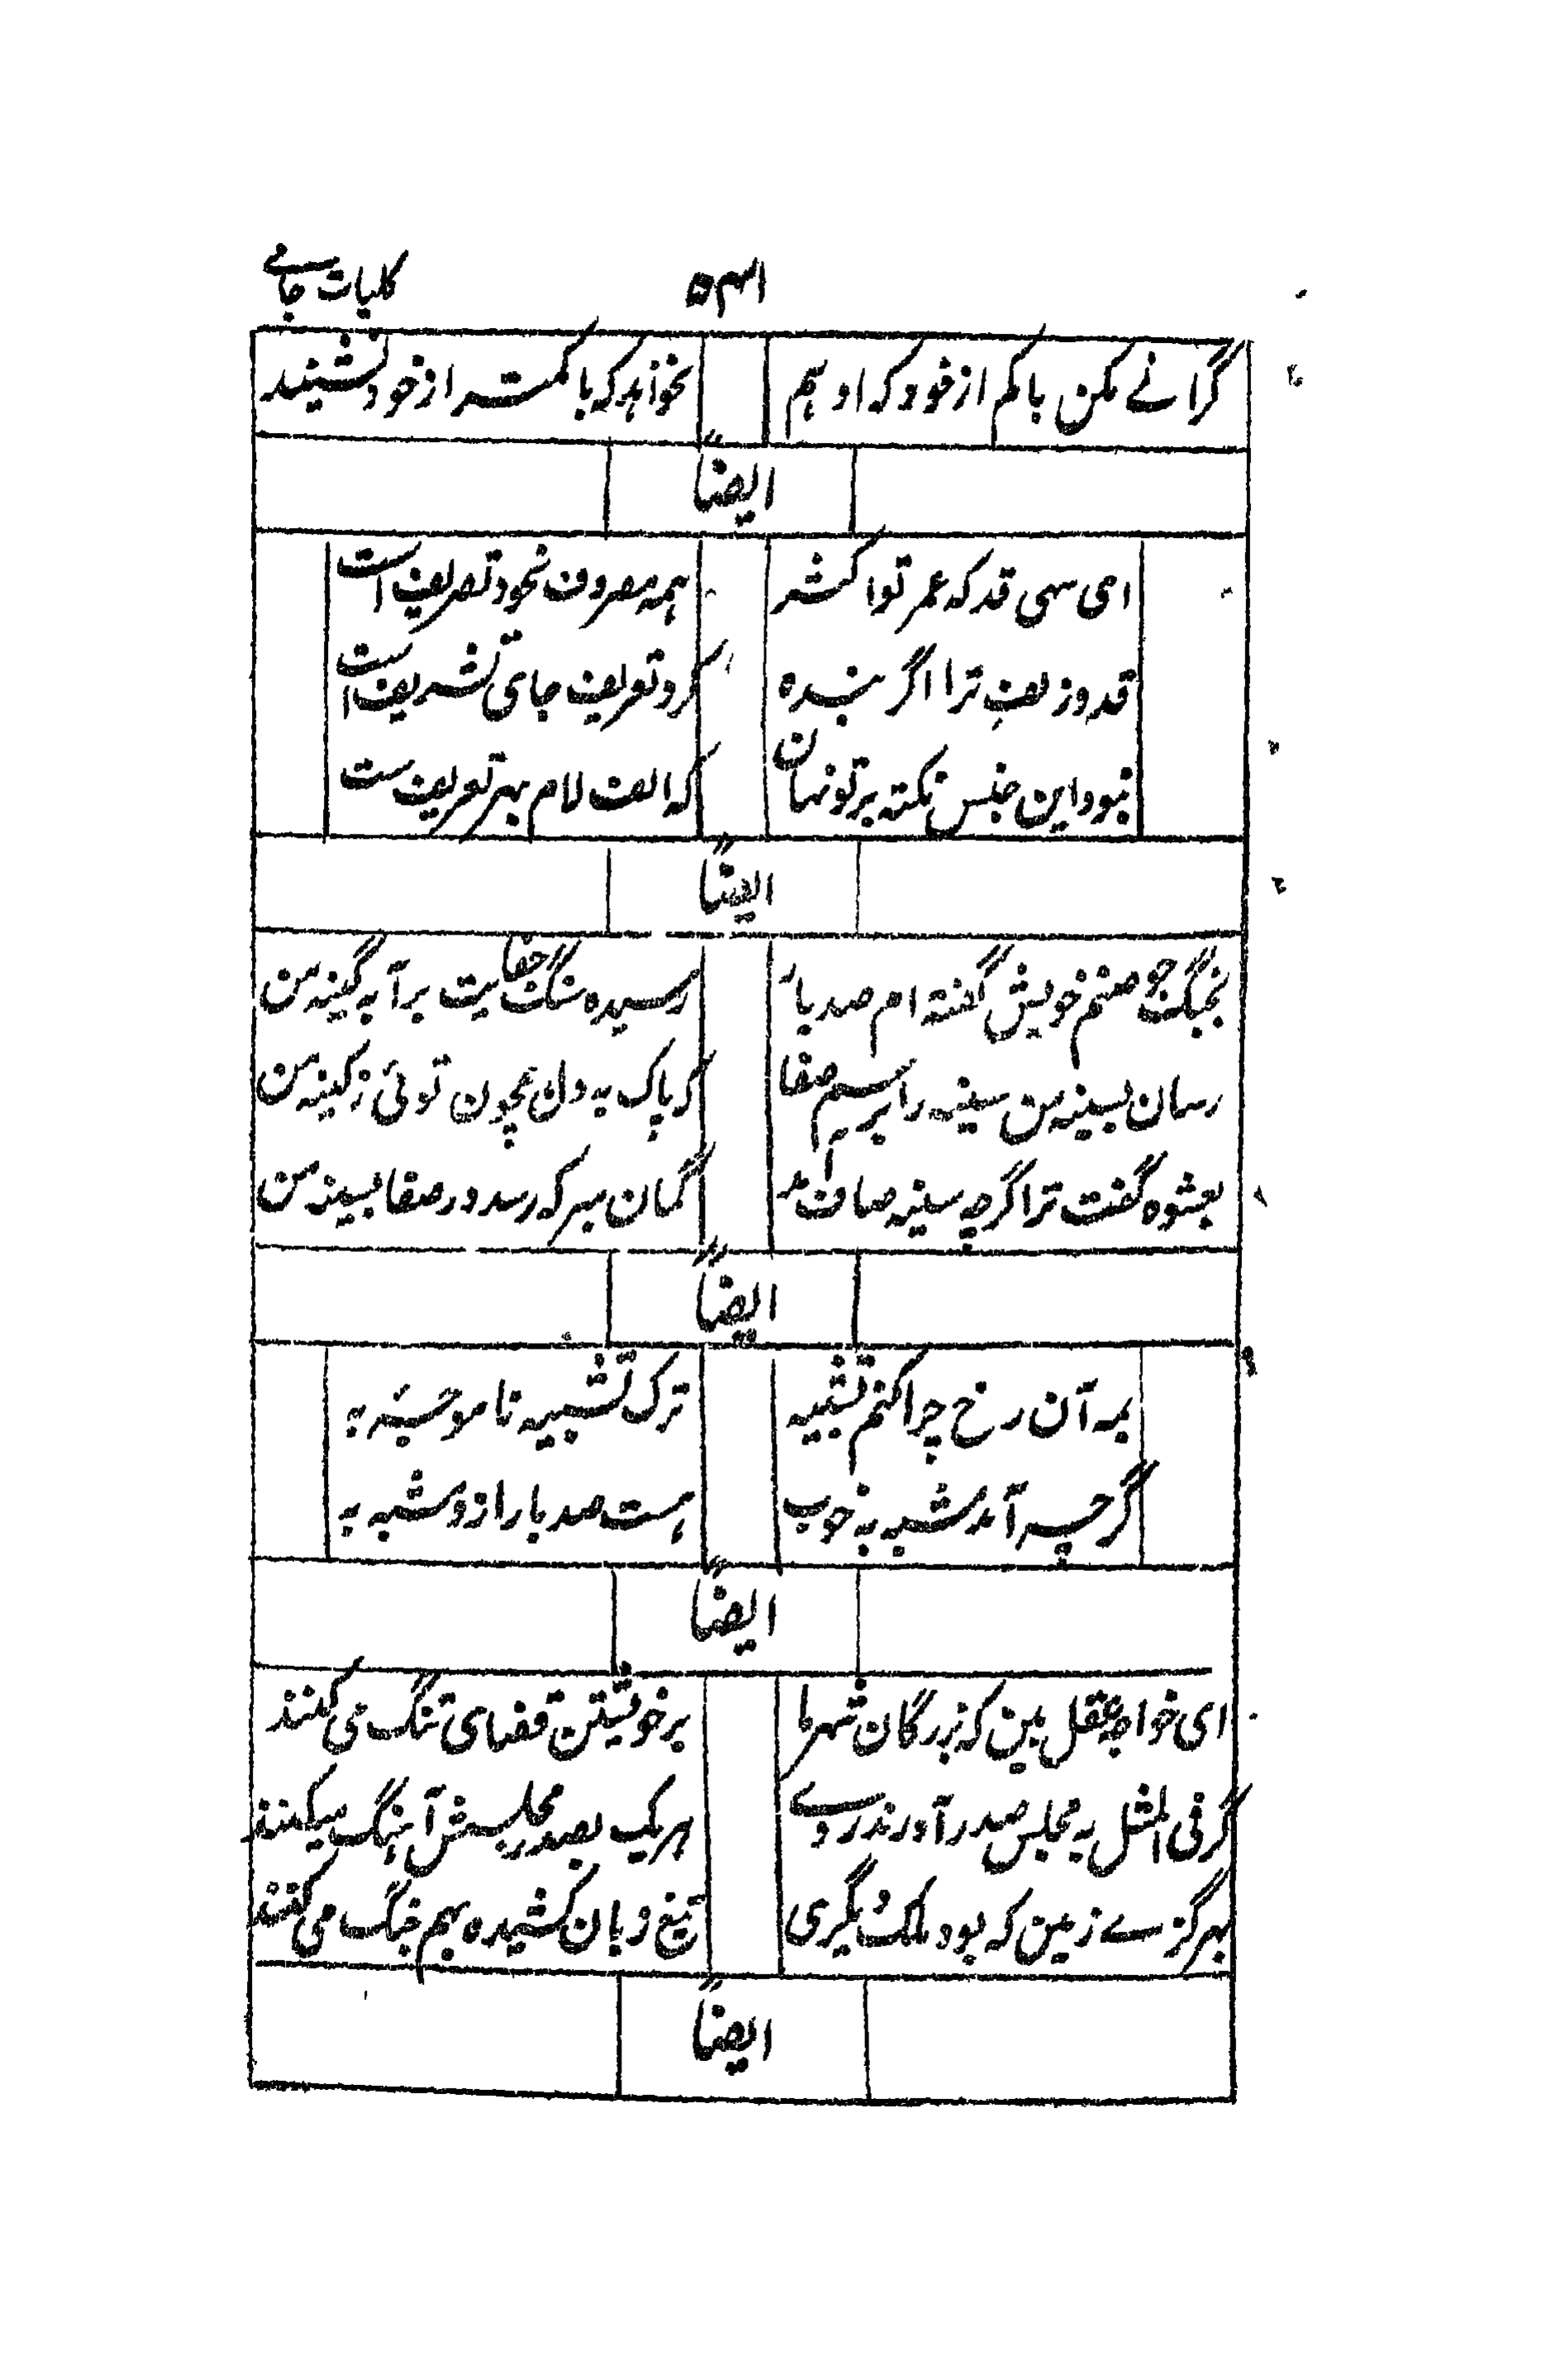 کلیات جامے
۵۴۱
گرانے مکن باکم از خود که او هم
نخواهد که باکمتر از خود نشیند
ایضاً
ای سهی قد که عمر تو اکثر
همه مصروف نحو و تصریف است
قد و زلف ترا اگر بنده
کرد تعریف جای تشریف است
نبود این جنس نکته بر تو نهان
که الف لام بهر تعریف ست
ایضاً
بجنگ جو صنم خویش گفته ام صد بار
رسیده سنگ جفایت بر آبگینه من
رسان بسینه من سینه را برسم صفا
که پاک به دل همچون توئی ز کینه من
بعشوه گفت ترا گرچه سینه صاف
گمان مبر که رسد در صفا بسینه من
ایضاً
بمه آن رخ چرا کنم تشبیه
ترک تشبیه نا موجه به
گرچه آمد مشبه به خوب
هست صد بار ازو مشبه به
ایضاً
ای خواجه عقل بین که بزرگان شهر ما
بر خویشتن فضای تنگ می کنند
گر فی المثل به مجلس صدر آورند روے
هریک بصدر مجلسش آهنگ میکنند
بهر گزے زمین که بود ملک دگیری
تیغ زبان کشیده بهم جنگ می کنند
ایضاً